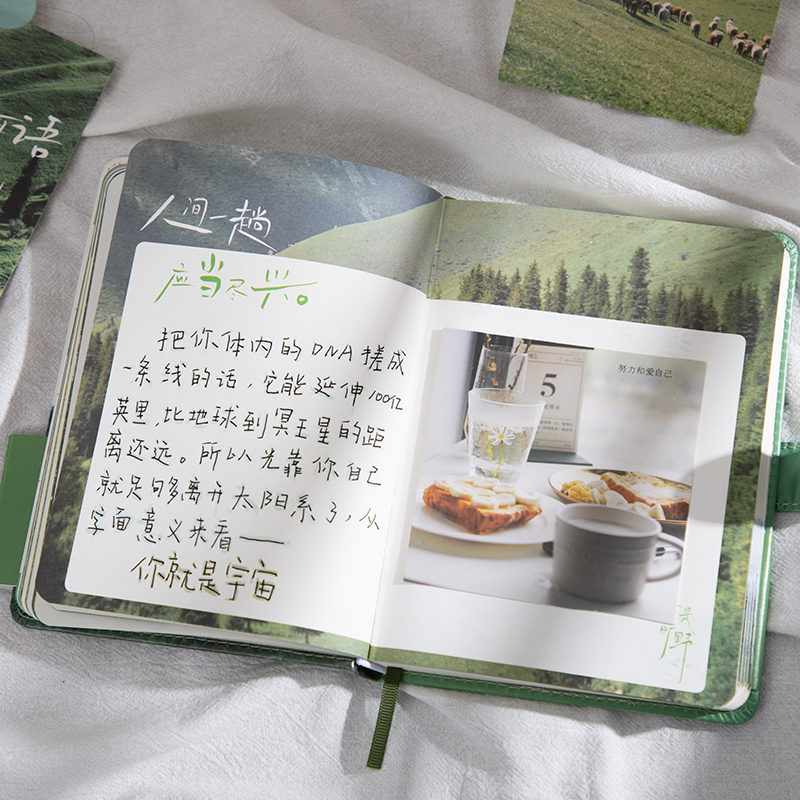 语
人间一趟
应当尽兴。
把你体内的DNA搓成
一条线的话，它能延伸100亿
英里，比地球到冥王星的距
离还远。所以光靠你自己
就足够离开太阳系了，从
字面意义来看——
你就是宇宙
5
努力和爱自己
旷野